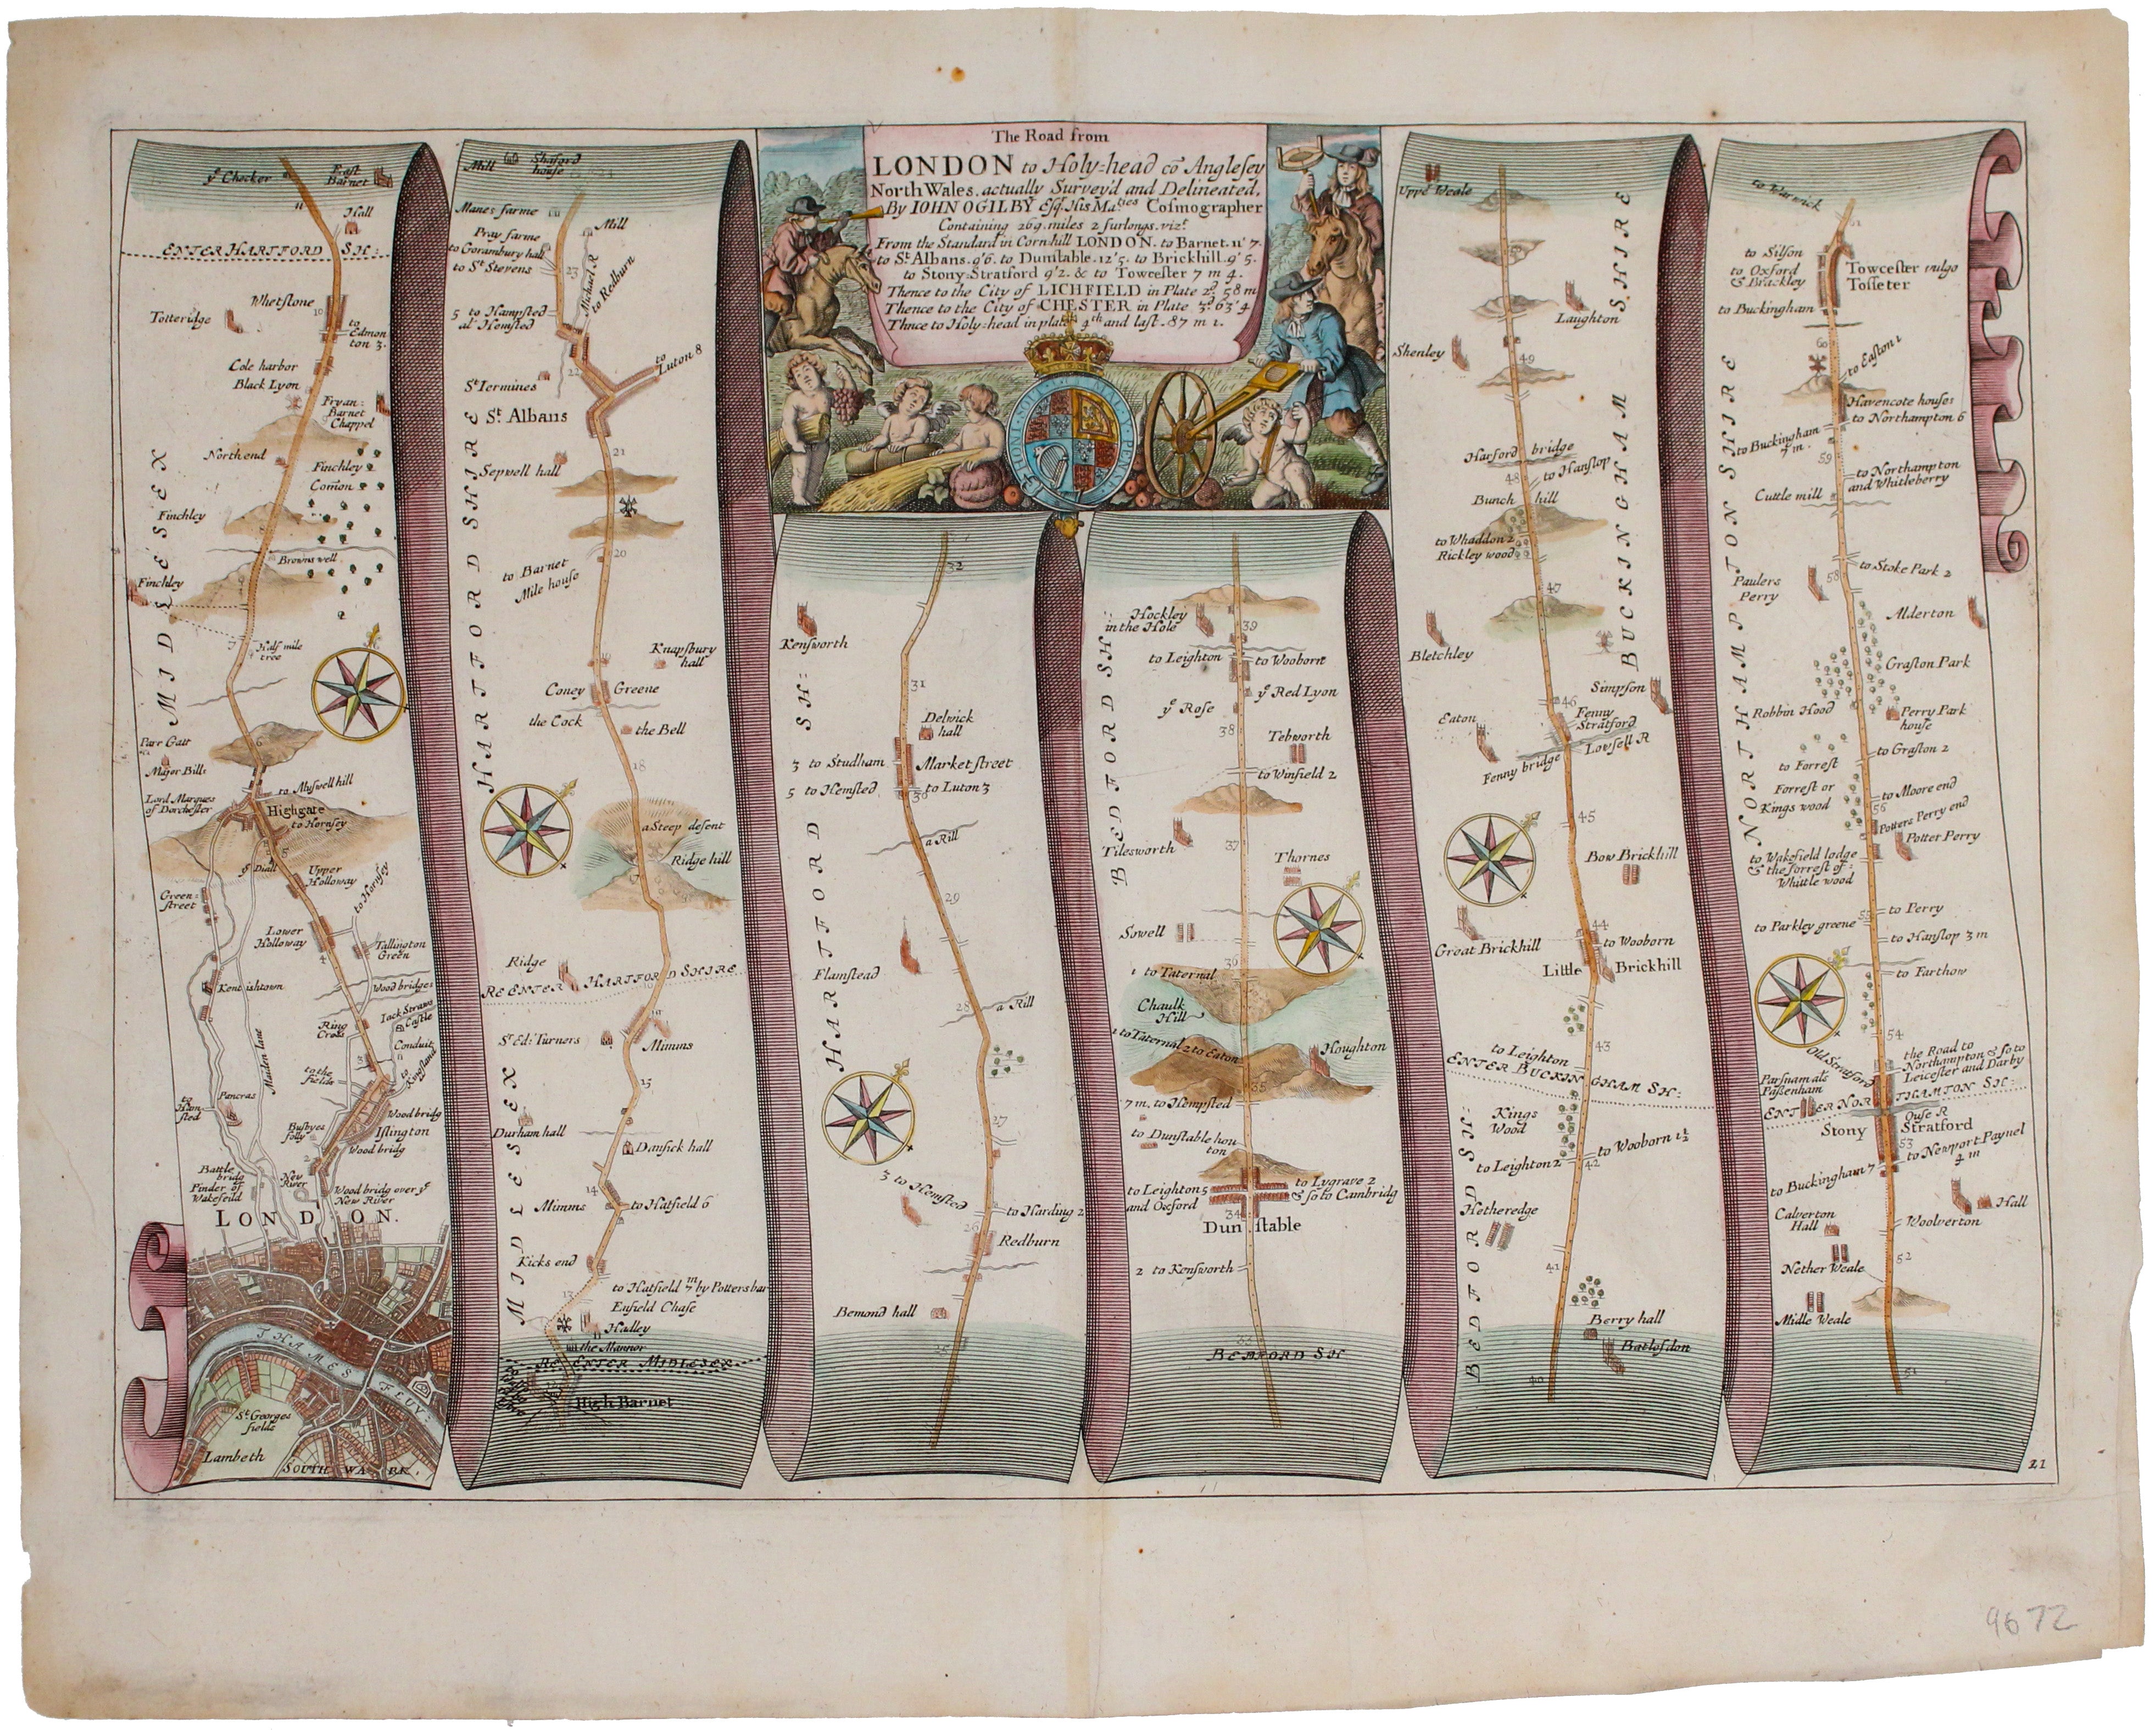 The Road from
LONDON to Holy=head cō Anglesey
North Wales. actually Survey'd and Delineated,
By IOHN OGILBY Esqr. His Maties Cosmographer
Containing 269 miles 2 furlongs. vizt.
From the Standard in Cornhill LONDON. to Barnet. 11'7.
to St Albans. 9'6. to Dunstable. 12'5. to Brickhill. 9'5.
to Stony=Stratford 9'2. & to Towcester 7 m 4.
Thence to the City of LICHFIELD in Plate 2d. 58 m
Thence to the City of CHESTER in Plate 3d. 63'4
Thnce to Holy=head in plate 4th and last. 87 m 1.
ye Checker
East
Barnet
11
Hall
ENTER HARTFORD SH:
Whetstone
10
Totteridge
to
Edmon
ton 3.
Cole harbor
Black Lyon
Fryan:
Barnet
Chappel
North end
Finchley
Com̄on
MIDLESEX
Finchley
8
Browns well
Finchley
7
Half mile
tree
6
Parr Gatt
Major Bills
to Muswell hill
Lord Marques
of Dorchester
Highgate
to Hornsey
5
ye Diall
Upper
Holloway
to Hornsey
Green=
street
Lower
Holloway
Tallington
Green
4
Kentishtown
Wood bridges
Iack Straws
Castle
Ring
Cross
Conduit
Maiden lane
3
to
Kingsland
to the
fields
to
Ham
sted
Pancras
Wood bridg
Busbyes
folly
Islington
Wood bridg
2
Battle
bridg
Pinder of
Wakefeild
New
River
Wood bridg over ye
New River
LONDON.
THAMES FLUV:
St Georges
fields
Lambeth
SOUTHWARK.
Mill
Shaford
house
Manes farme
Mill
Pray farme
to Gorambury hall
to St Stevens
23
Michael R
to Redburn
5 to Hampsted
al Hemsted
22
to
Luton 8
St Iermines
St Albans
HARTFORD SHIRE
21
Sepwell hall
20
to Barnet
Mile house
Knapsbury
hall
19
Coney Greene
the Cock
the Bell
18
a Steep desent
Ridge hill
17
Ridge
REENTER HARTFORD SHIRE
16
St Ed: Turners
Mimms
15
MIDLESEX
Durham hall
Dansick hall
14
Mimms
to Hatfield 6
Kicks end
to Hatfield 7m by Pottersbar
13
Enfield Chase
Hadley
the Mannor
REENTER MIDLESEX
High Barnet
32
Kensworth
31
HARTFORD SH:
Delwick
hall
3 to Studham
Market street
5 to Hemsted
to Luton 3
30
a Rill
29
Flamstead
28
a Rill
27
3 to Hemsted
to Harding 2
26
Redburn
Bemond hall
25
Hockley
in the Hole
39
to Leighton
to Wooborn
BEDFORD SH:
ye Red Lyon
ye Rose
38
Tebworth
to Winfield 2
Tilesworth
37
Thornes
Sowell
36
1 to Taternal
Chaulk
Hill
1 to Taternal 2 to Eaton
Houghton
35
7 m. to Hempsted
to Dunstable hou
ton
to Leighton 5
and Oxford
to Lygrave 2
& so to Cambridg
34
Dunstable
2 to Kensworth
33
BEDFORD SH
Uppr Weale
Laughton
49
Shenley
BUCKINGHAM SHIRE
Harford bridge
to Hanslop
48
Bunch hill
to Whaddon 2
Rickley wood
47
Bletchley
46
Simpson
Eaton
Fenny
Stratford
Lowsell R
Fenny bridge
45
Bow Brickhill
44
Great Brickhill
to Wooborn
Little Brickhill
43
to Leighton
ENTER BUCKINGHAM SH:
BEDFORD SH:
Kings
Wood
to Wooborn 1½
to Leighton 2
42
Hetheredge
41
Berry hall
Batlesdon
40
to Warwick
61
to Silson
to Oxford
& Brackley
Towcester vulgo
Tosseter
to Buckingham
60
to Easton 1
Havencote house:
to Northampton 6
to Buckingham
7 m.
59
to Northampton
and Whitleberry
Cuttle mill
NORTHAMPTON SHIRE
to Stoke Park 2
58
Paulers
Perry
Alderton
Grafton Park
Robbin Hood
Perry Park
house
to Grafton 2
to Forrest
Forrest or
Kings wood
to Moore end
56
Potters Perry end
Potter Perry
to Wakefield lodge
& the forrest of
Whittle wood
to Perry
55
to Parkley greene
to Hanslop 3 m
to Farthow
54
Old Stratford
the Road to
Northampton & so to
Leicester and Darby
Parsnam als
Passenham
ENTER NORTHAMTON SH:
Ouse R
Stony Stratford
53
to Newport=Paynel
4 m
to Buckingham 7
Hall
Calverton
Hall
Woolverton
52
Nether Weale
Midle Weale
51
21
9672